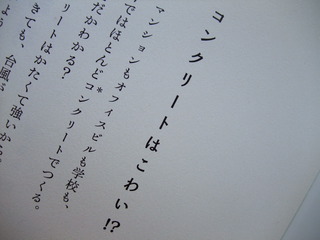 コンクリートはこわい!?
マンションもオフィスビルも学校も、
ではほとんど*コンクリートでつくる。
だかわかる?
リートはかたくて強いから
きても、台風